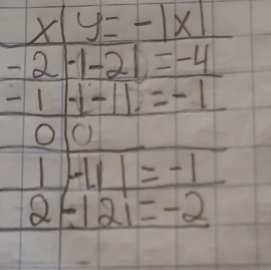 x y = -|x|
-2 -|-2| = -4
-1 -|-1| = -1
0 0
1 -|1| = -1
2 -|2| = -2